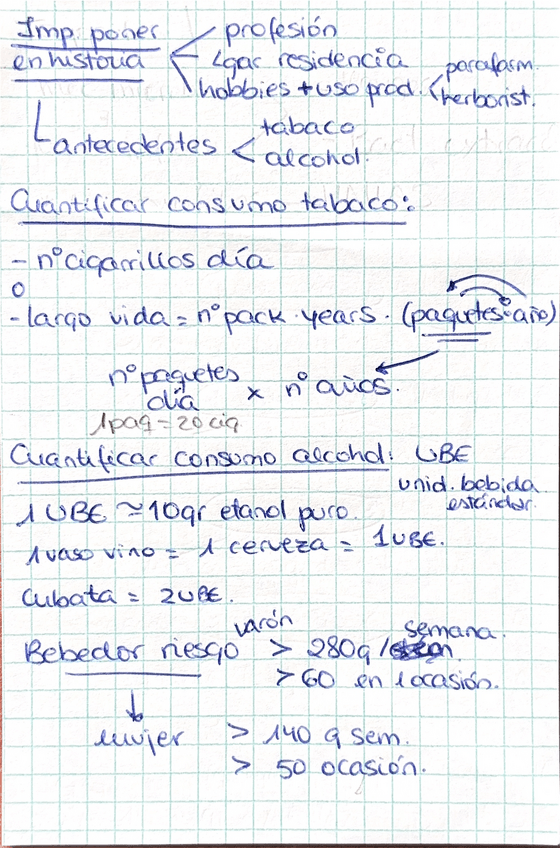 Imp. poner
en historia
profesión
lgar residencia
hobbies + uso prod.
parafarm.
herborist.
antecedentes
tabaco
alcohol.
Cuantificar consumo tabaco:
- nº cigarrillos día
o
- largo vida = nº pack years. (paquetes·año)
nº paquetes
día
x nº años.
1 paq = 20 cig
Cuantificar consumo alcohol: UBE
unid. bebida
estándar.
1 UBE ≃ 10gr etanol puro.
1 vaso vino = 1 cerveza = 1 UBE.
Cubata = 2 UBE.
Bebedor riesgo varón > 280g / semana.
> 60 en 1 ocasión.
mujer > 140 g sem.
> 50 ocasión.